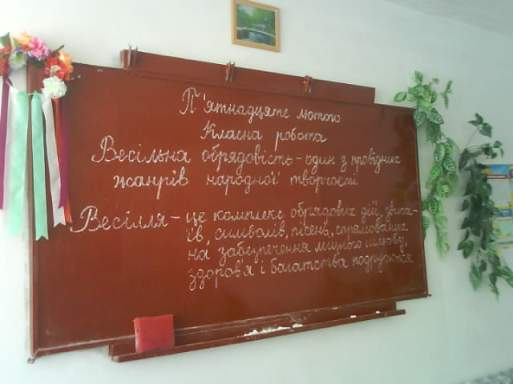 П'ятнадцяте лютого
Класна робота
Весільна обрядовість – один з провідних
жанрів народної творчості.
Весілля – це комплекс обрядових дій, звича-
їв, символів, пісень, спрямованих
на забезпечення міцного шлюбу,
здоров'я і багатства подружжя